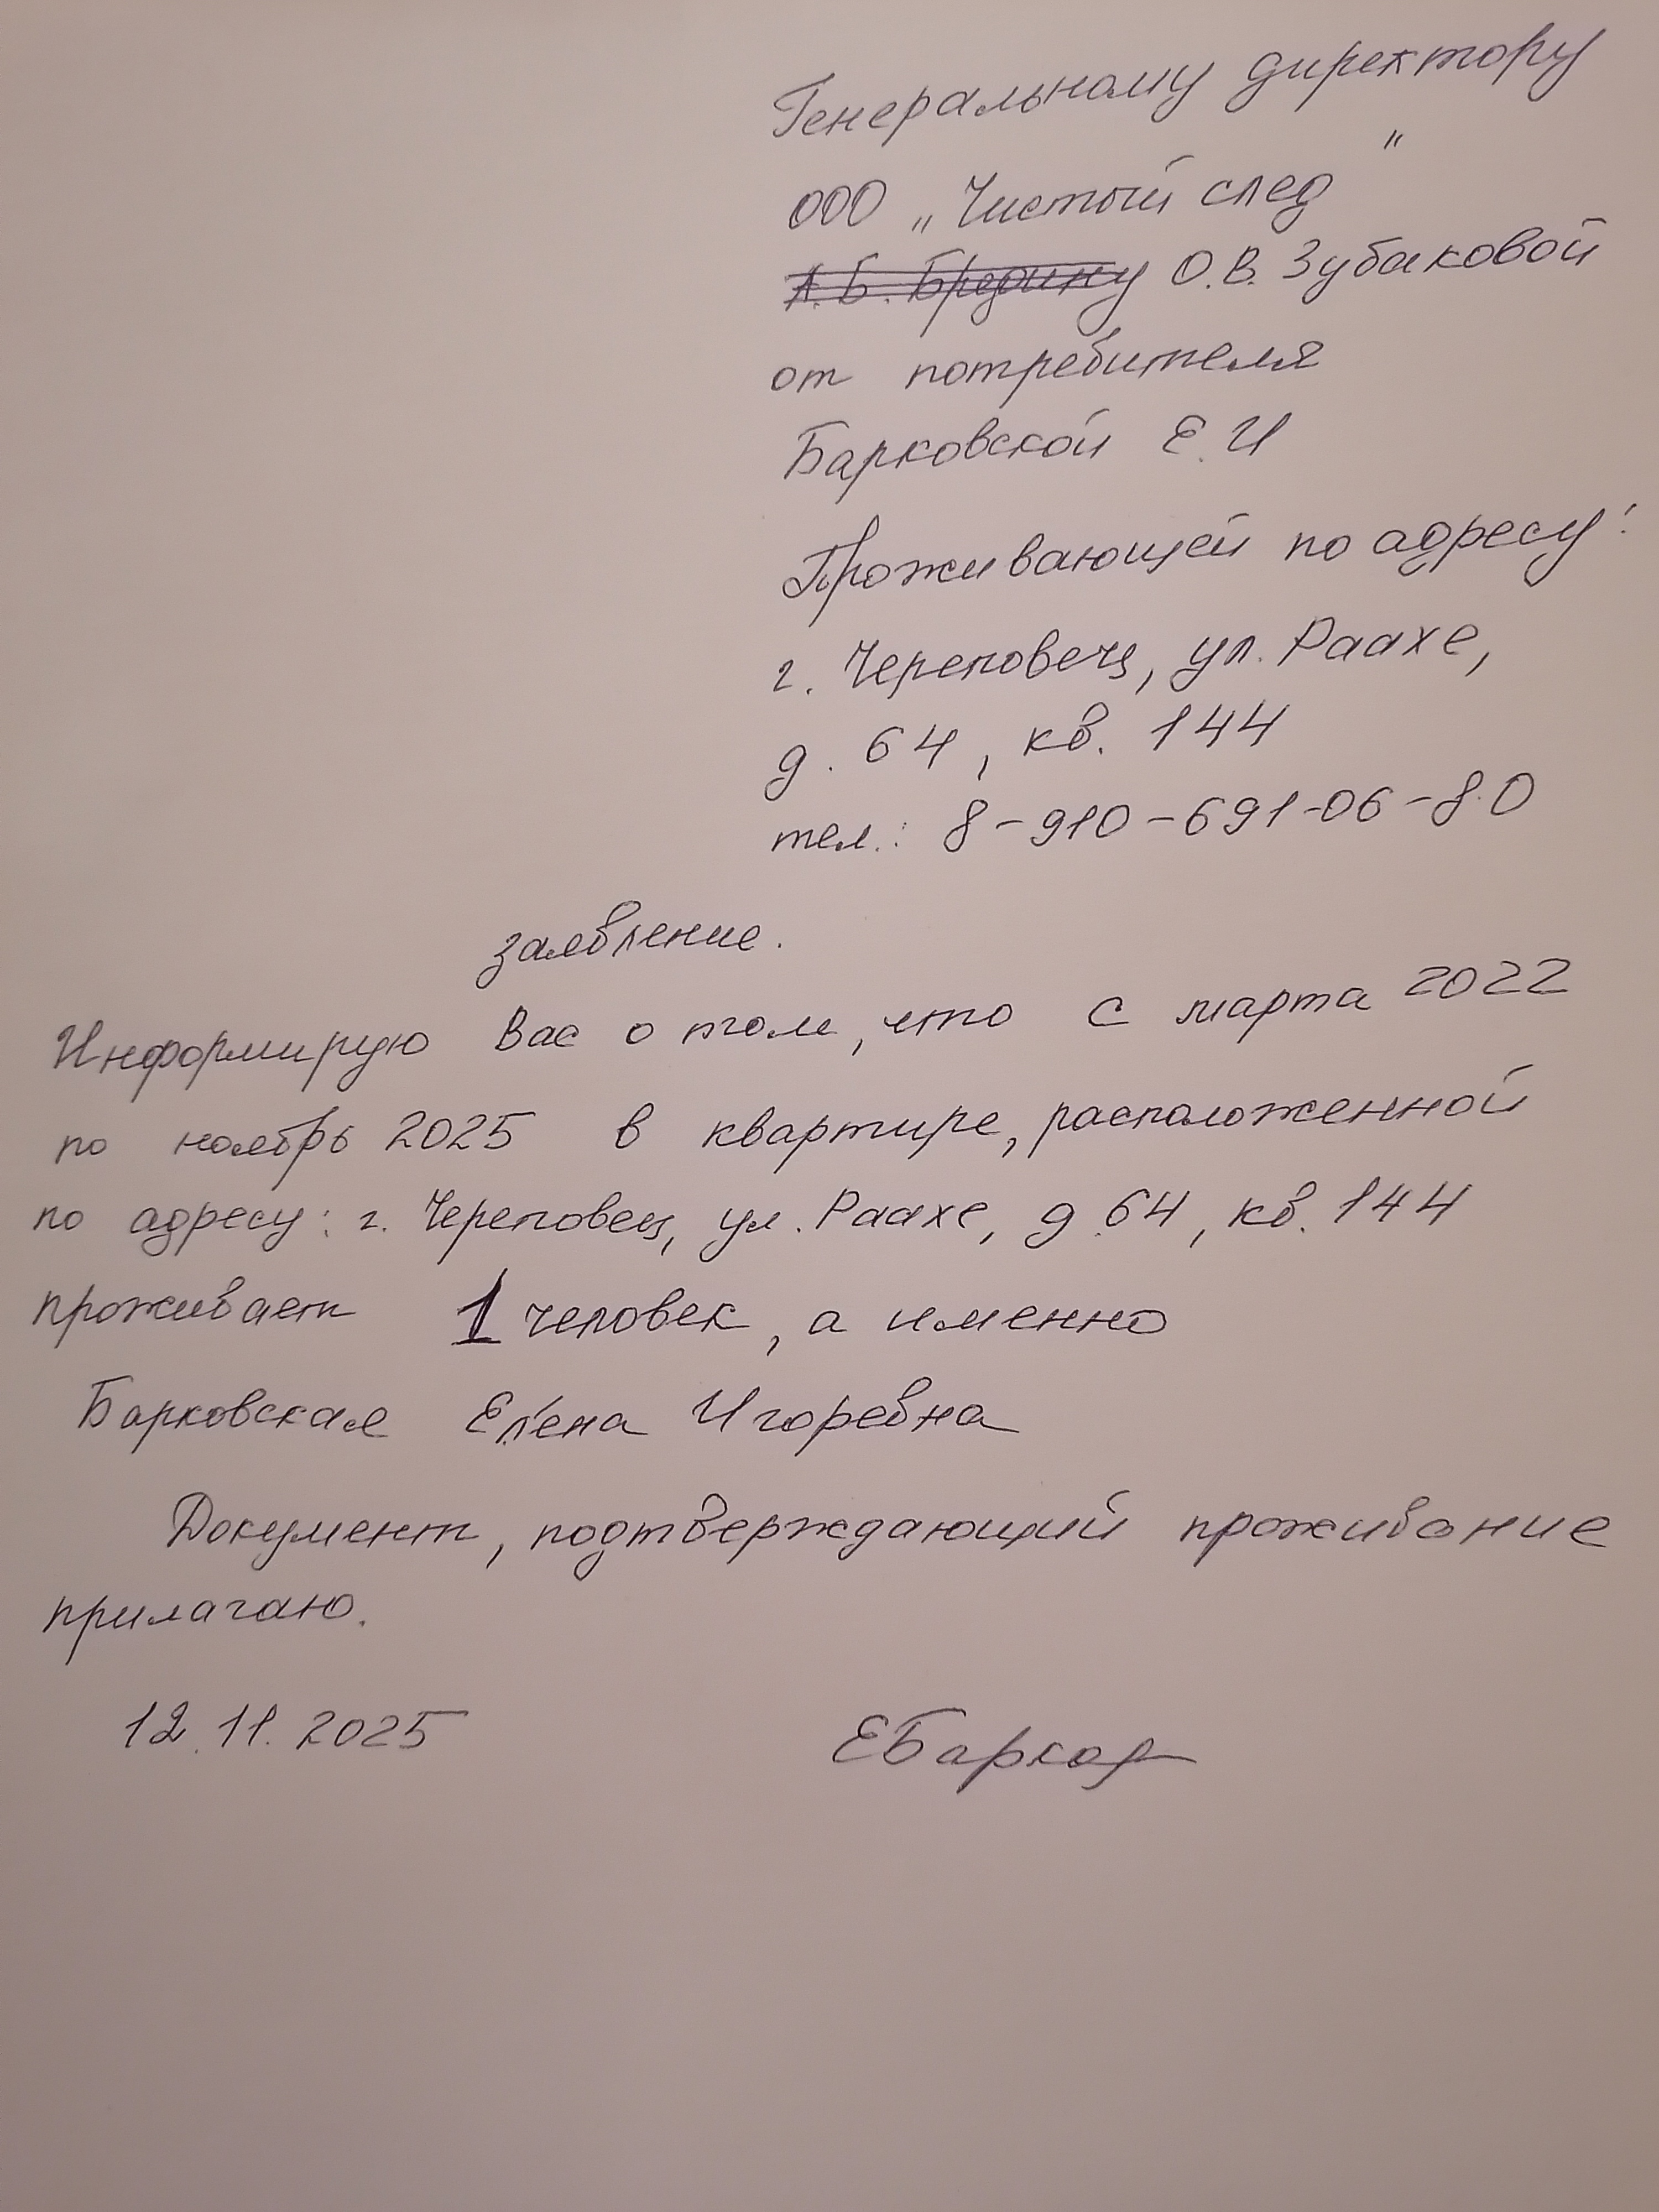 Генеральному директору
ООО "Чистый след"
А.Б. Бредину О.В. Зубаковой
от потребителя
Барковской Е.И
Проживающей по адресу:
г. Череповец, ул. Раахе,
д. 64, кв. 144
тел.: 8-910-691-06-80
заявление.
Информирую Вас о том, что с марта 2022
по ноябрь 2025 в квартире, расположенной
по адресу: г. Череповец, ул. Раахе, д.64, кв. 144
проживает 1 человек, а именно
Барковская Елена Игоревна
Документ, подтверждающий проживание
прилагаю.
12.11.2025 ЕБарков